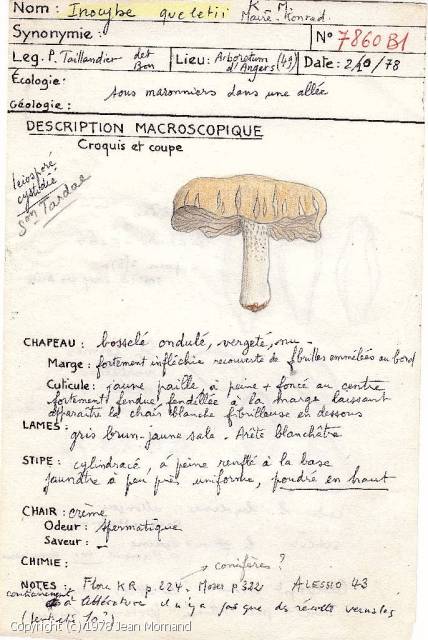 Nom : Inocybe queletii K. M.
Maire-Konrad
Synonymie : N° 7860 B1
Leg. P. Taillandier det Bon Lieu : Arboretum d'Angers (49) Date : /78
Écologie : sous marronniers dans une allée
Géologie :
DESCRIPTION MACROSCOPIQUE
Croquis et coupe
leiosporé
cystidié
Son Tardae
CHAPEAU : bosselé ondulé, vergeté, nu
Marge : fortement infléchie recouverte de fibrilles emmêlées au bord
Cuticule : jaune paille, à peine + foncé au centre
fortement fendue, fendillée à la marge laissant
apparaître la chair blanche fibrilleuse en dessous
LAMES : gris brun-jaune sale. Arête blanchâtre
STIPE : cylindracé, à peine renflé à la base
jaunâtre à peu près uniforme, poudré en haut
CHAIR : crème
Odeur : spermatique
Saveur : —
CHIMIE : conifères ?
NOTES : Flore KR p. 224. Moser p 322 ALESSIO 43
contrairement
à littérature il n'y a pas que des récoltes vernales
Copyright (c)1978 Jean Mornand